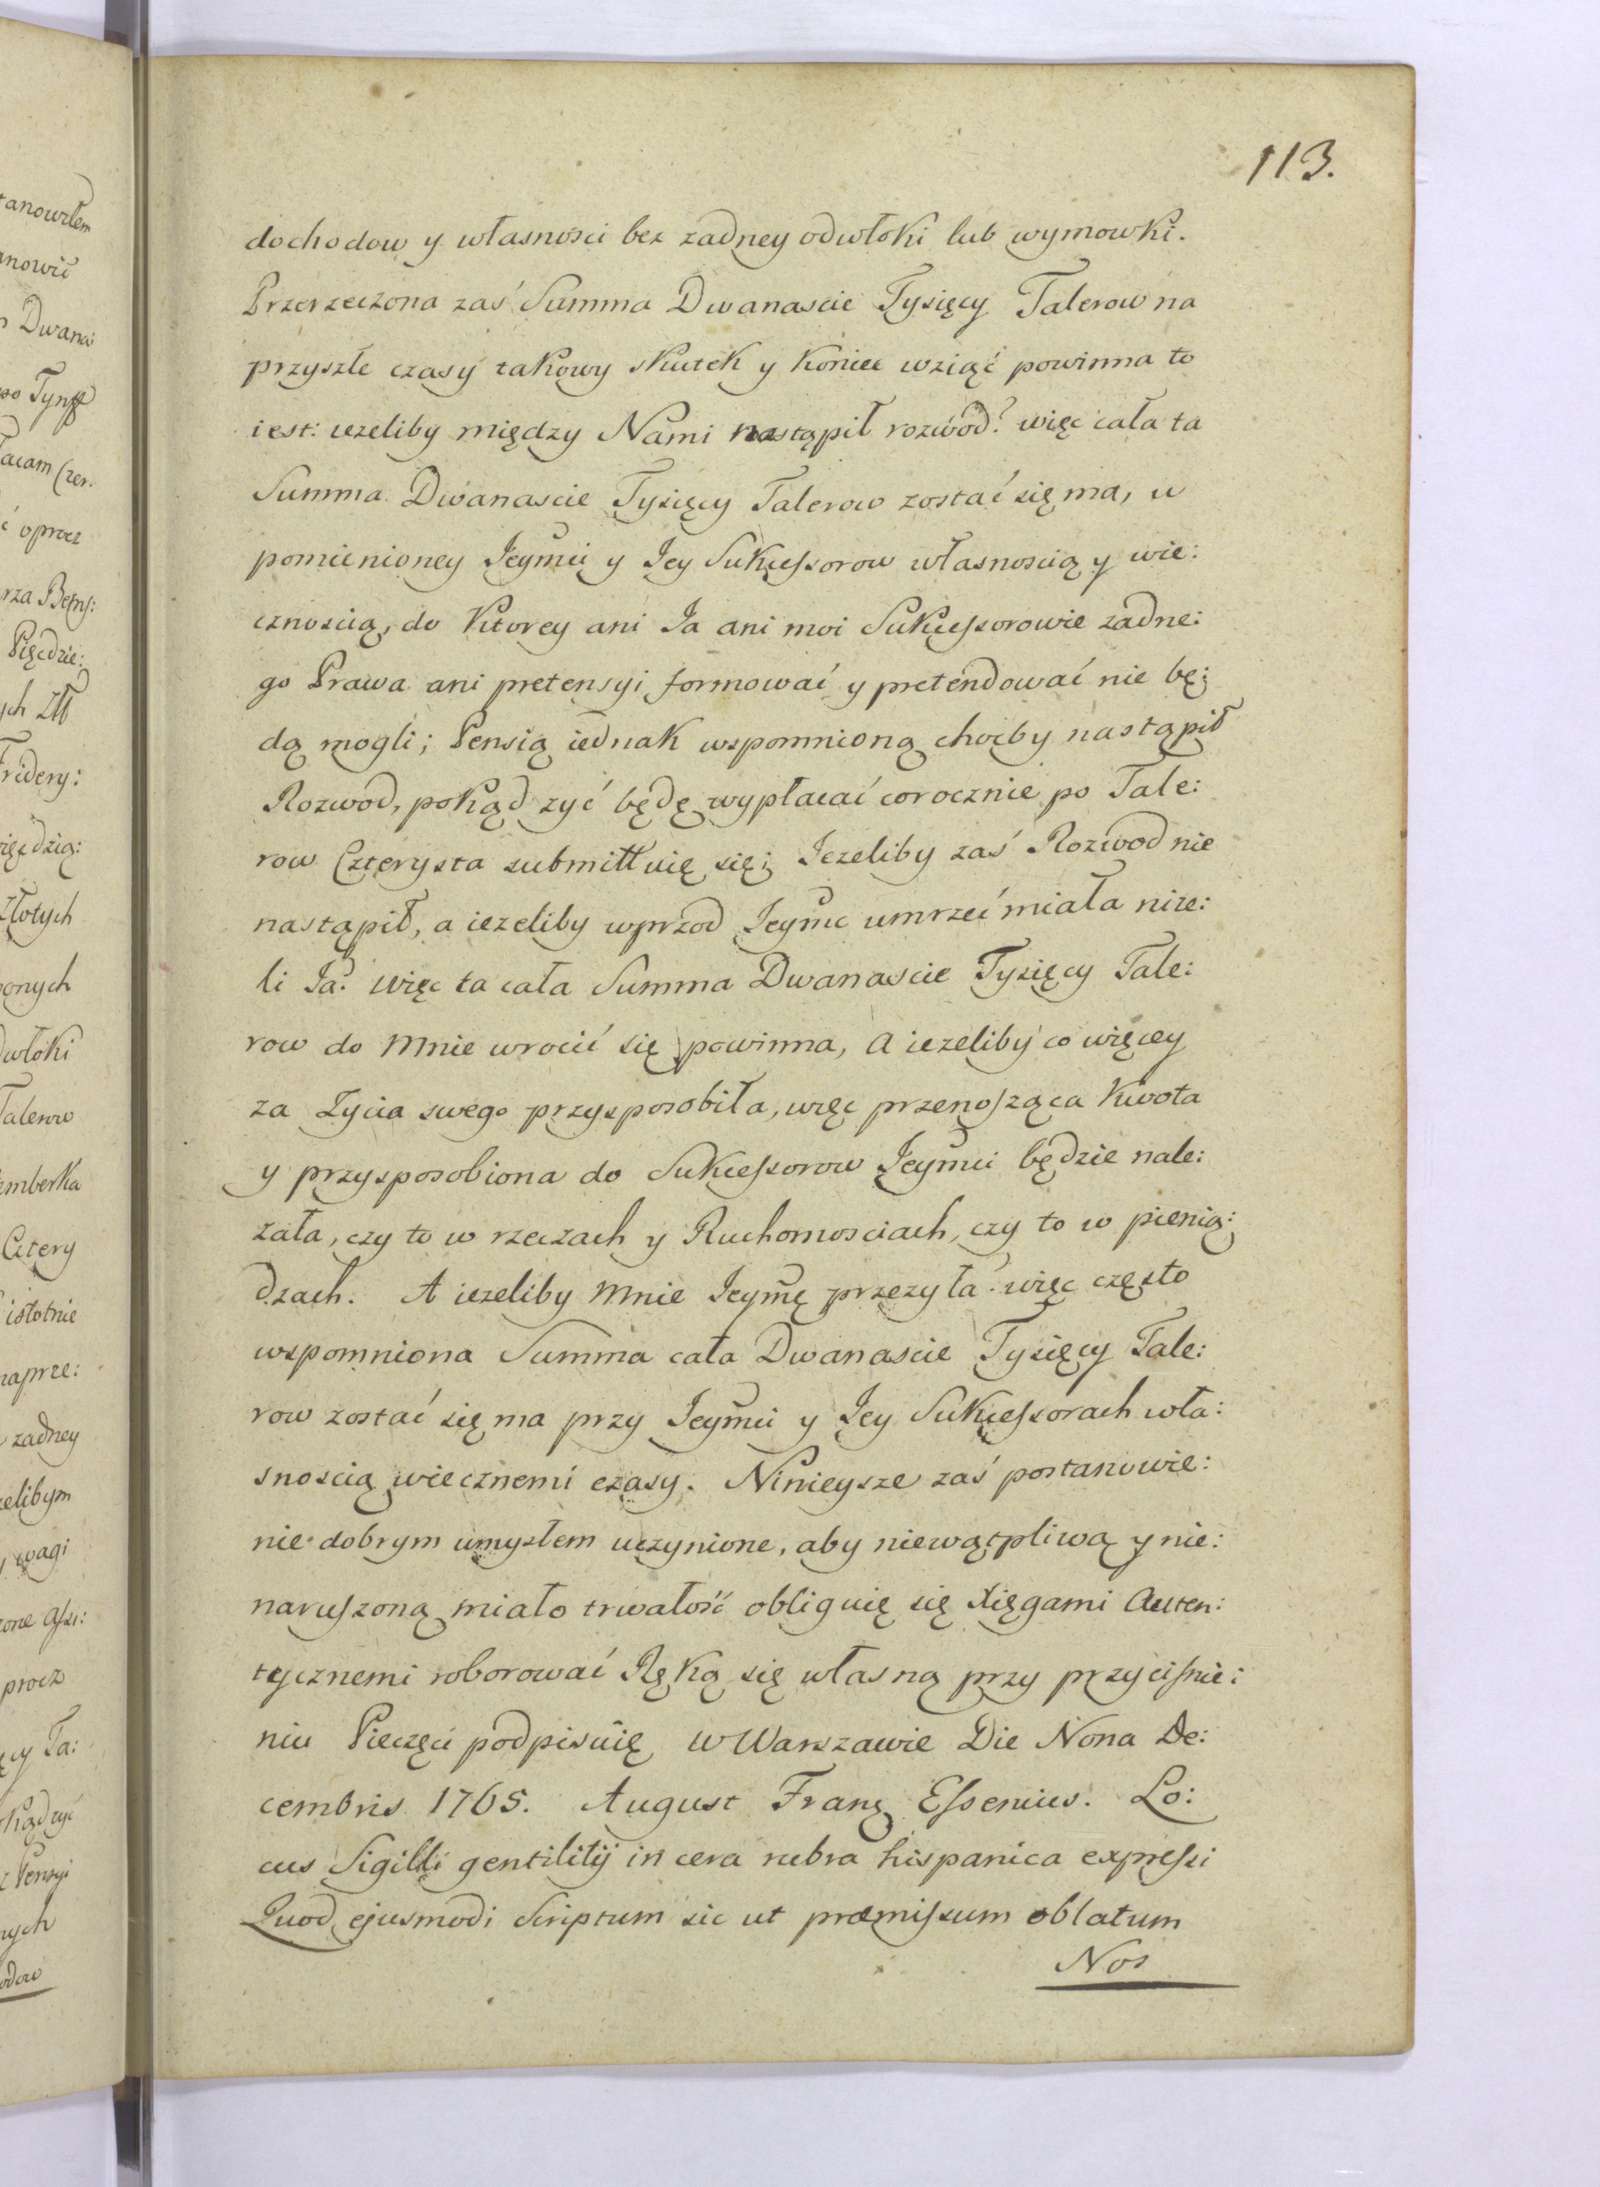 113.
dochodow y własności bez żadney odwłoki lub wymowki.
Przerzeczona zaś Summa Dwanascie Tysięcy Talerow na
przyszłe czasy takowy skutek y koniec wziąć powinna to
iest: ieżeliby między Nami nastąpił rozwod? więc cała ta
Summa Dwanascie Tysięcy Talerow zostać się ma, u
pomienioney Jeymci y Jey Sukcessorow własnoscią y wie:
cznoscią, do Ktorey ani Ja ani moi Sukcessorowie zadne:
go Prawa ani pretensyi formować y pretendować nie bę:
dą mogli; Pensią iednak wspomnioną choćby nastąpił
Rozwod, pokąd zyć będę wypłacać corocznie po Tale:
row Czterysta submittuię się; Jezeliby zaś Rozwod nie
nastąpił, a iezeliby wprzod Jeymc umrzeć miała niże:
li Ja? więc ta cała Summa Dwanascie Tysięcy Tale:
row do Mnie wrocić się powinna, A iezeliby co więcey
za Zycia swego przysposobiła, więc przenosząca Kwota
y przysposobiona do Sukcessorow Jeymci będzie nale:
zała, czy to w rzeczach y Ruchomosciach, czy to w pienią:
dzach. A iezeliby Mnie Jeymę przezyła? więc często
wspomniona Summa cała Dwanascie Tysięcy Tale:
row zostać się ma przy Jeymci y Jey Sukcessorach wła:
snoscią wiecznemi czasy. Ninieysze zaś postanowie:
nie dobrym umysłem uczynione, aby niewątpliwą y nie:
naruszoną miało trwałość obliguię się Xięgami Auten:
tycznemi roborować Ręką się własną przy przyciśnie:
niu Pieczęci podpisuię w Warszawie Die Nona De:
cembris 1765. August Franz Essenius. Lo:
cus Sigilli gentilitij in cera rubra hispanica expressi
Quod ejusmodi Scriptum sic ut præmissum oblatum
Nos